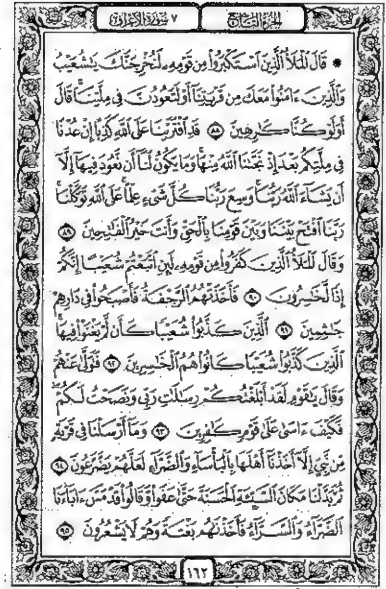 الجزء التاسع ٧ سورة الأعراف
۞ قَالَ ٱلْمَلَأُ ٱلَّذِينَ ٱسْتَكْبَرُوا۟ مِن قَوْمِهِۦ لَنُخْرِجَنَّكَ يَٰشُعَيْبُ
وَٱلَّذِينَ ءَامَنُوا۟ مَعَكَ مِن قَرْيَتِنَآ أَوْ لَتَعُودُنَّ فِى مِلَّتِنَا قَالَ
أَوَلَوْ كُنَّا كَٰرِهِينَ ٨٨ قَدِ ٱفْتَرَيْنَا عَلَى ٱللَّهِ كَذِبًا إِنْ عُدْنَا
فِى مِلَّتِكُم بَعْدَ إِذْ نَجَّىٰنَا ٱللَّهُ مِنْهَا وَمَا يَكُونُ لَنَآ أَن نَّعُودَ فِيهَآ إِلَّآ
أَن يَشَآءَ ٱللَّهُ رَبُّنَا وَسِعَ رَبُّنَا كُلَّ شَىْءٍ عِلْمًا عَلَى ٱللَّهِ تَوَكَّلْنَا
رَبَّنَا ٱفْتَحْ بَيْنَنَا وَبَيْنَ قَوْمِنَا بِٱلْحَقِّ وَأَنتَ خَيْرُ ٱلْفَٰتِحِينَ ٨٩
وَقَالَ ٱلْمَلَأُ ٱلَّذِينَ كَفَرُوا۟ مِن قَوْمِهِۦ لَئِنِ ٱتَّبَعْتُمْ شُعَيْبًا إِنَّكُمْ
إِذًا لَّخَٰسِرُونَ ٩٠ فَأَخَذَتْهُمُ ٱلرَّجْفَةُ فَأَصْبَحُوا۟ فِى دَارِهِمْ
جَٰثِمِينَ ٩١ ٱلَّذِينَ كَذَّبُوا۟ شُعَيْبًا كَأَن لَّمْ يَغْنَوْا۟ فِيهَا
ٱلَّذِينَ كَذَّبُوا۟ شُعَيْبًا كَانُوا۟ هُمُ ٱلْخَٰسِرِينَ ٩٢ فَتَوَلَّىٰ عَنْهُمْ
وَقَالَ يَٰقَوْمِ لَقَدْ أَبْلَغْتُكُمْ رِسَٰلَٰتِ رَبِّى وَنَصَحْتُ لَكُمْ
فَكَيْفَ ءَاسَىٰ عَلَىٰ قَوْمٍ كَٰفِرِينَ ٩٣ وَمَآ أَرْسَلْنَا فِى قَرْيَةٍ
مِّن نَّبِىٍّ إِلَّآ أَخَذْنَآ أَهْلَهَا بِٱلْبَأْسَآءِ وَٱلضَّرَّآءِ لَعَلَّهُمْ يَضَّرَّعُونَ ٩٤
ثُمَّ بَدَّلْنَا مَكَانَ ٱلسَّيِّئَةِ ٱلْحَسَنَةَ حَتَّىٰ عَفَوا۟ وَّقَالُوا۟ قَدْ مَسَّ ءَابَآءَنَا
ٱلضَّرَّآءُ وَٱلسَّرَّآءُ فَأَخَذْنَٰهُم بَغْتَةً وَهُمْ لَا يَشْعُرُونَ ٩٥
١٦٢